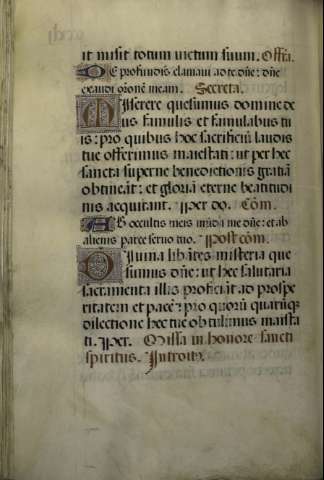 it misit totum victum suum. Offa.
De profundis clamavi ad te dñe: dñe
exaudi oronẽ meam. Secreta.
Miserere quesumus domine de
us famulis et famulabus tu
is: pro quibus hoc sacrificiũ laudis
tue offerimus maiestati: ut per hec
sancta superne benedictionis gratiã
obtineãt: et gloriã eterne beatitudi
nis acquirant. Per do. Cõm.
Ab occultis meis mũda me dñe: et ab
alienis parce servo tuo. Post cõm.
Divina libãtes misteria que
sumus dñe: ut hec salutaria
sacramenta illis proficiãt ad prospe
ritatem et pacẽ: pro quorũ quarũqz
dilectione hec tue obtulimus maiesta
ti. Per. Missa in honore sancti
spiritus. Introitus.